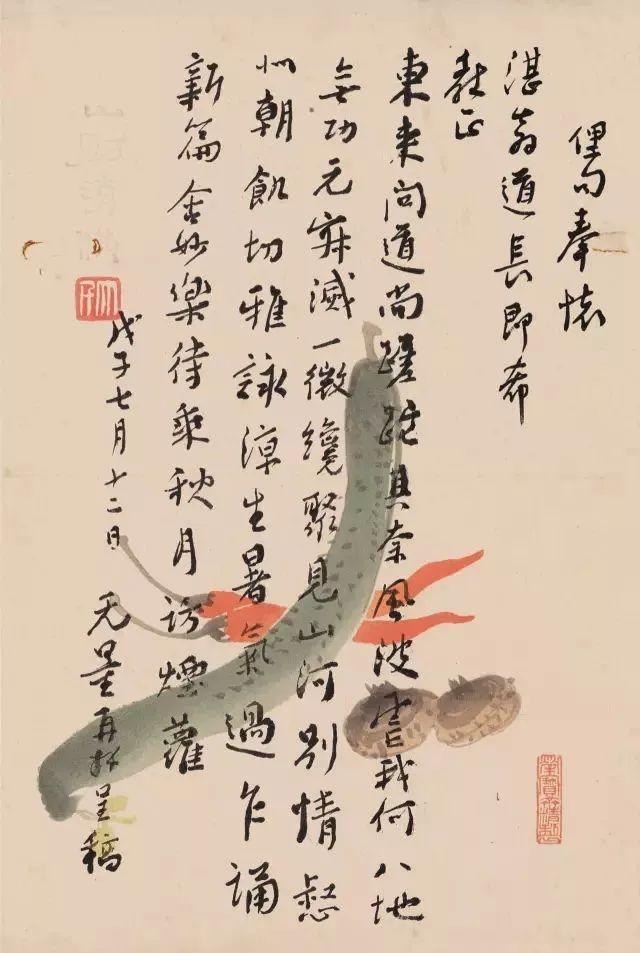 俚句奉懷
湛翁道長即希
教正
東來問道尚蹉跎其奈風波害我何八地
無功元寂滅一微纔聚見山河別情惄
似朝飢切雅詠涼生暑氣過乍誦
新篇含妙樂待乘秋月訪煙蘿
戊子七月十二日 无量再拜呈稿